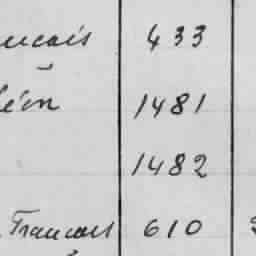 ucais 433
léon 1481
1482
Francais 610